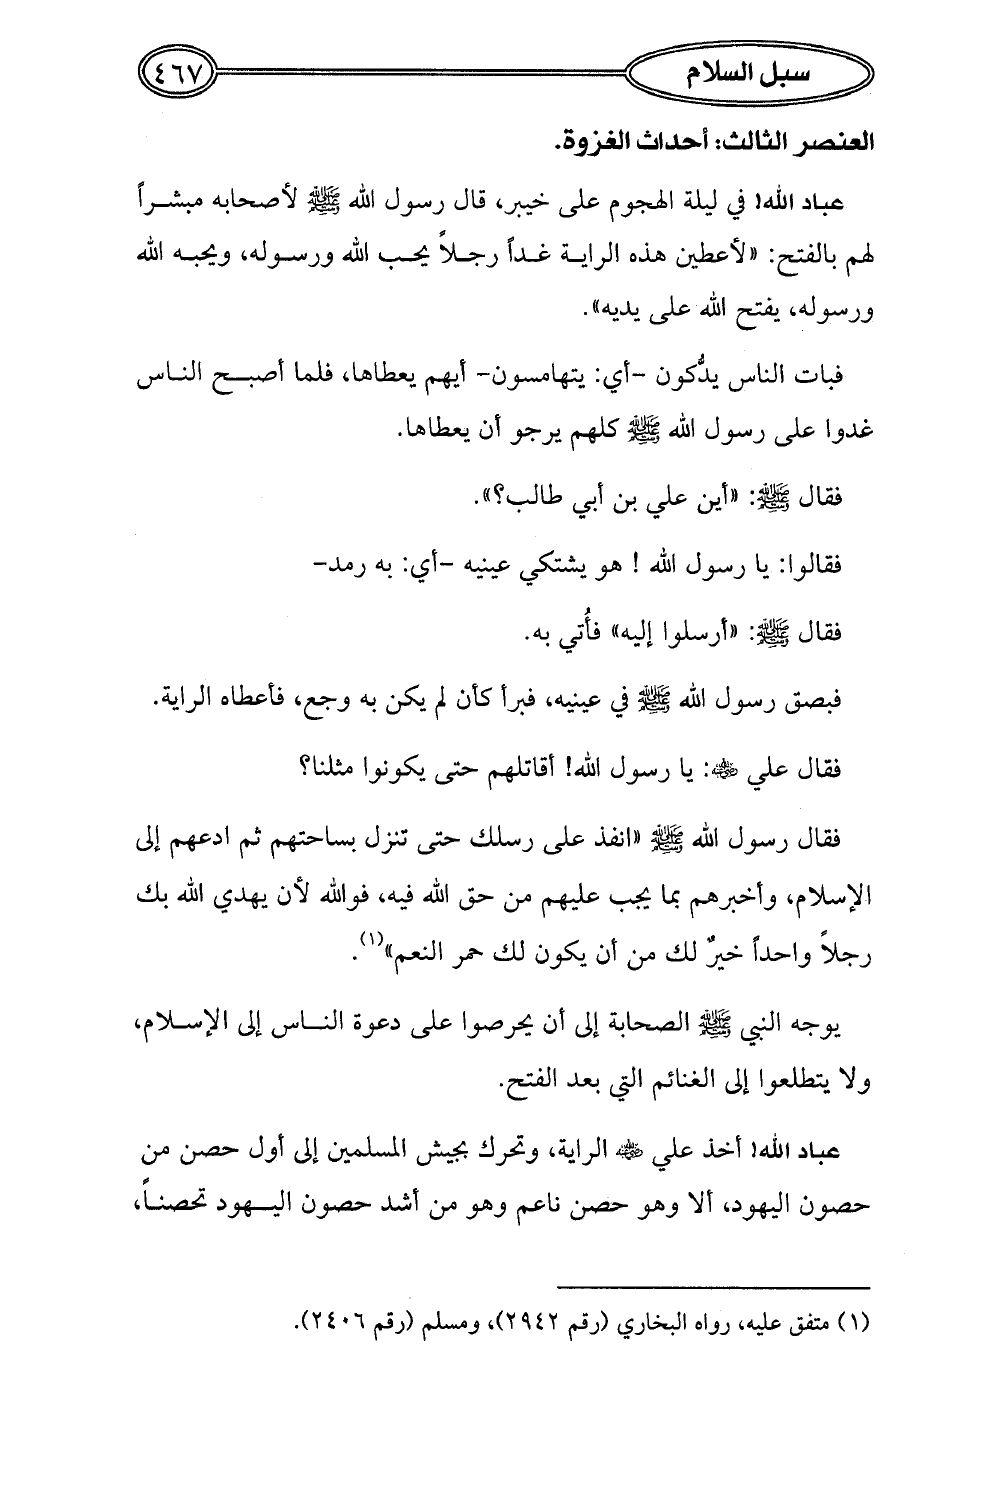 سبل السلام
٤٦٧
العنصر الثالث: أحداث الغزوة.
عباد الله! في ليلة الهجوم على خيبر، قال رسول الله ﷺ لأصحابه مبشراً
لهم بالفتح: «لأعطين هذه الراية غداً رجلاً يحب الله ورسوله، ويحبه الله
ورسوله، يفتح الله على يديه».
فبات الناس يدُّكون -أي: يتهامسون- أيهم يعطاها، فلما أصبح الناس
غدوا على رسول الله ﷺ كلهم يرجو أن يعطاها.
فقال ﷺ: «أين علي بن أبي طالب؟».
فقالوا: يا رسول الله ! هو يشتكي عينيه -أي: به رمد-
فقال ﷺ: «أرسلوا إليه» فأُتي به.
فبصق رسول الله ﷺ في عينيه، فبرأ كأن لم يكن به وجع، فأعطاه الراية.
فقال علي رضي الله عنه: يا رسول الله! أقاتلهم حتى يكونوا مثلنا؟
فقال رسول الله ﷺ «انفذ على رسلك حتى تنزل بساحتهم ثم ادعهم إلى
الإسلام، وأخبرهم بما يجب عليهم من حق الله فيه، فوالله لأن يهدي الله بك
رجلاً واحداً خيرٌ لك من أن يكون لك حمر النعم»(١).
يوجه النبي ﷺ الصحابة إلى أن يحرصوا على دعوة الناس إلى الإسلام،
ولا يتطلعوا إلى الغنائم التي بعد الفتح.
عباد الله! أخذ علي رضي الله عنه الراية، وتحرك بجيش المسلمين إلى أول حصن من
حصون اليهود، ألا وهو حصن ناعم وهو من أشد حصون اليهود تحصناً،
(١) متفق عليه، رواه البخاري (رقم ٢٩٤٢)، ومسلم (رقم ٢٤٠٦).